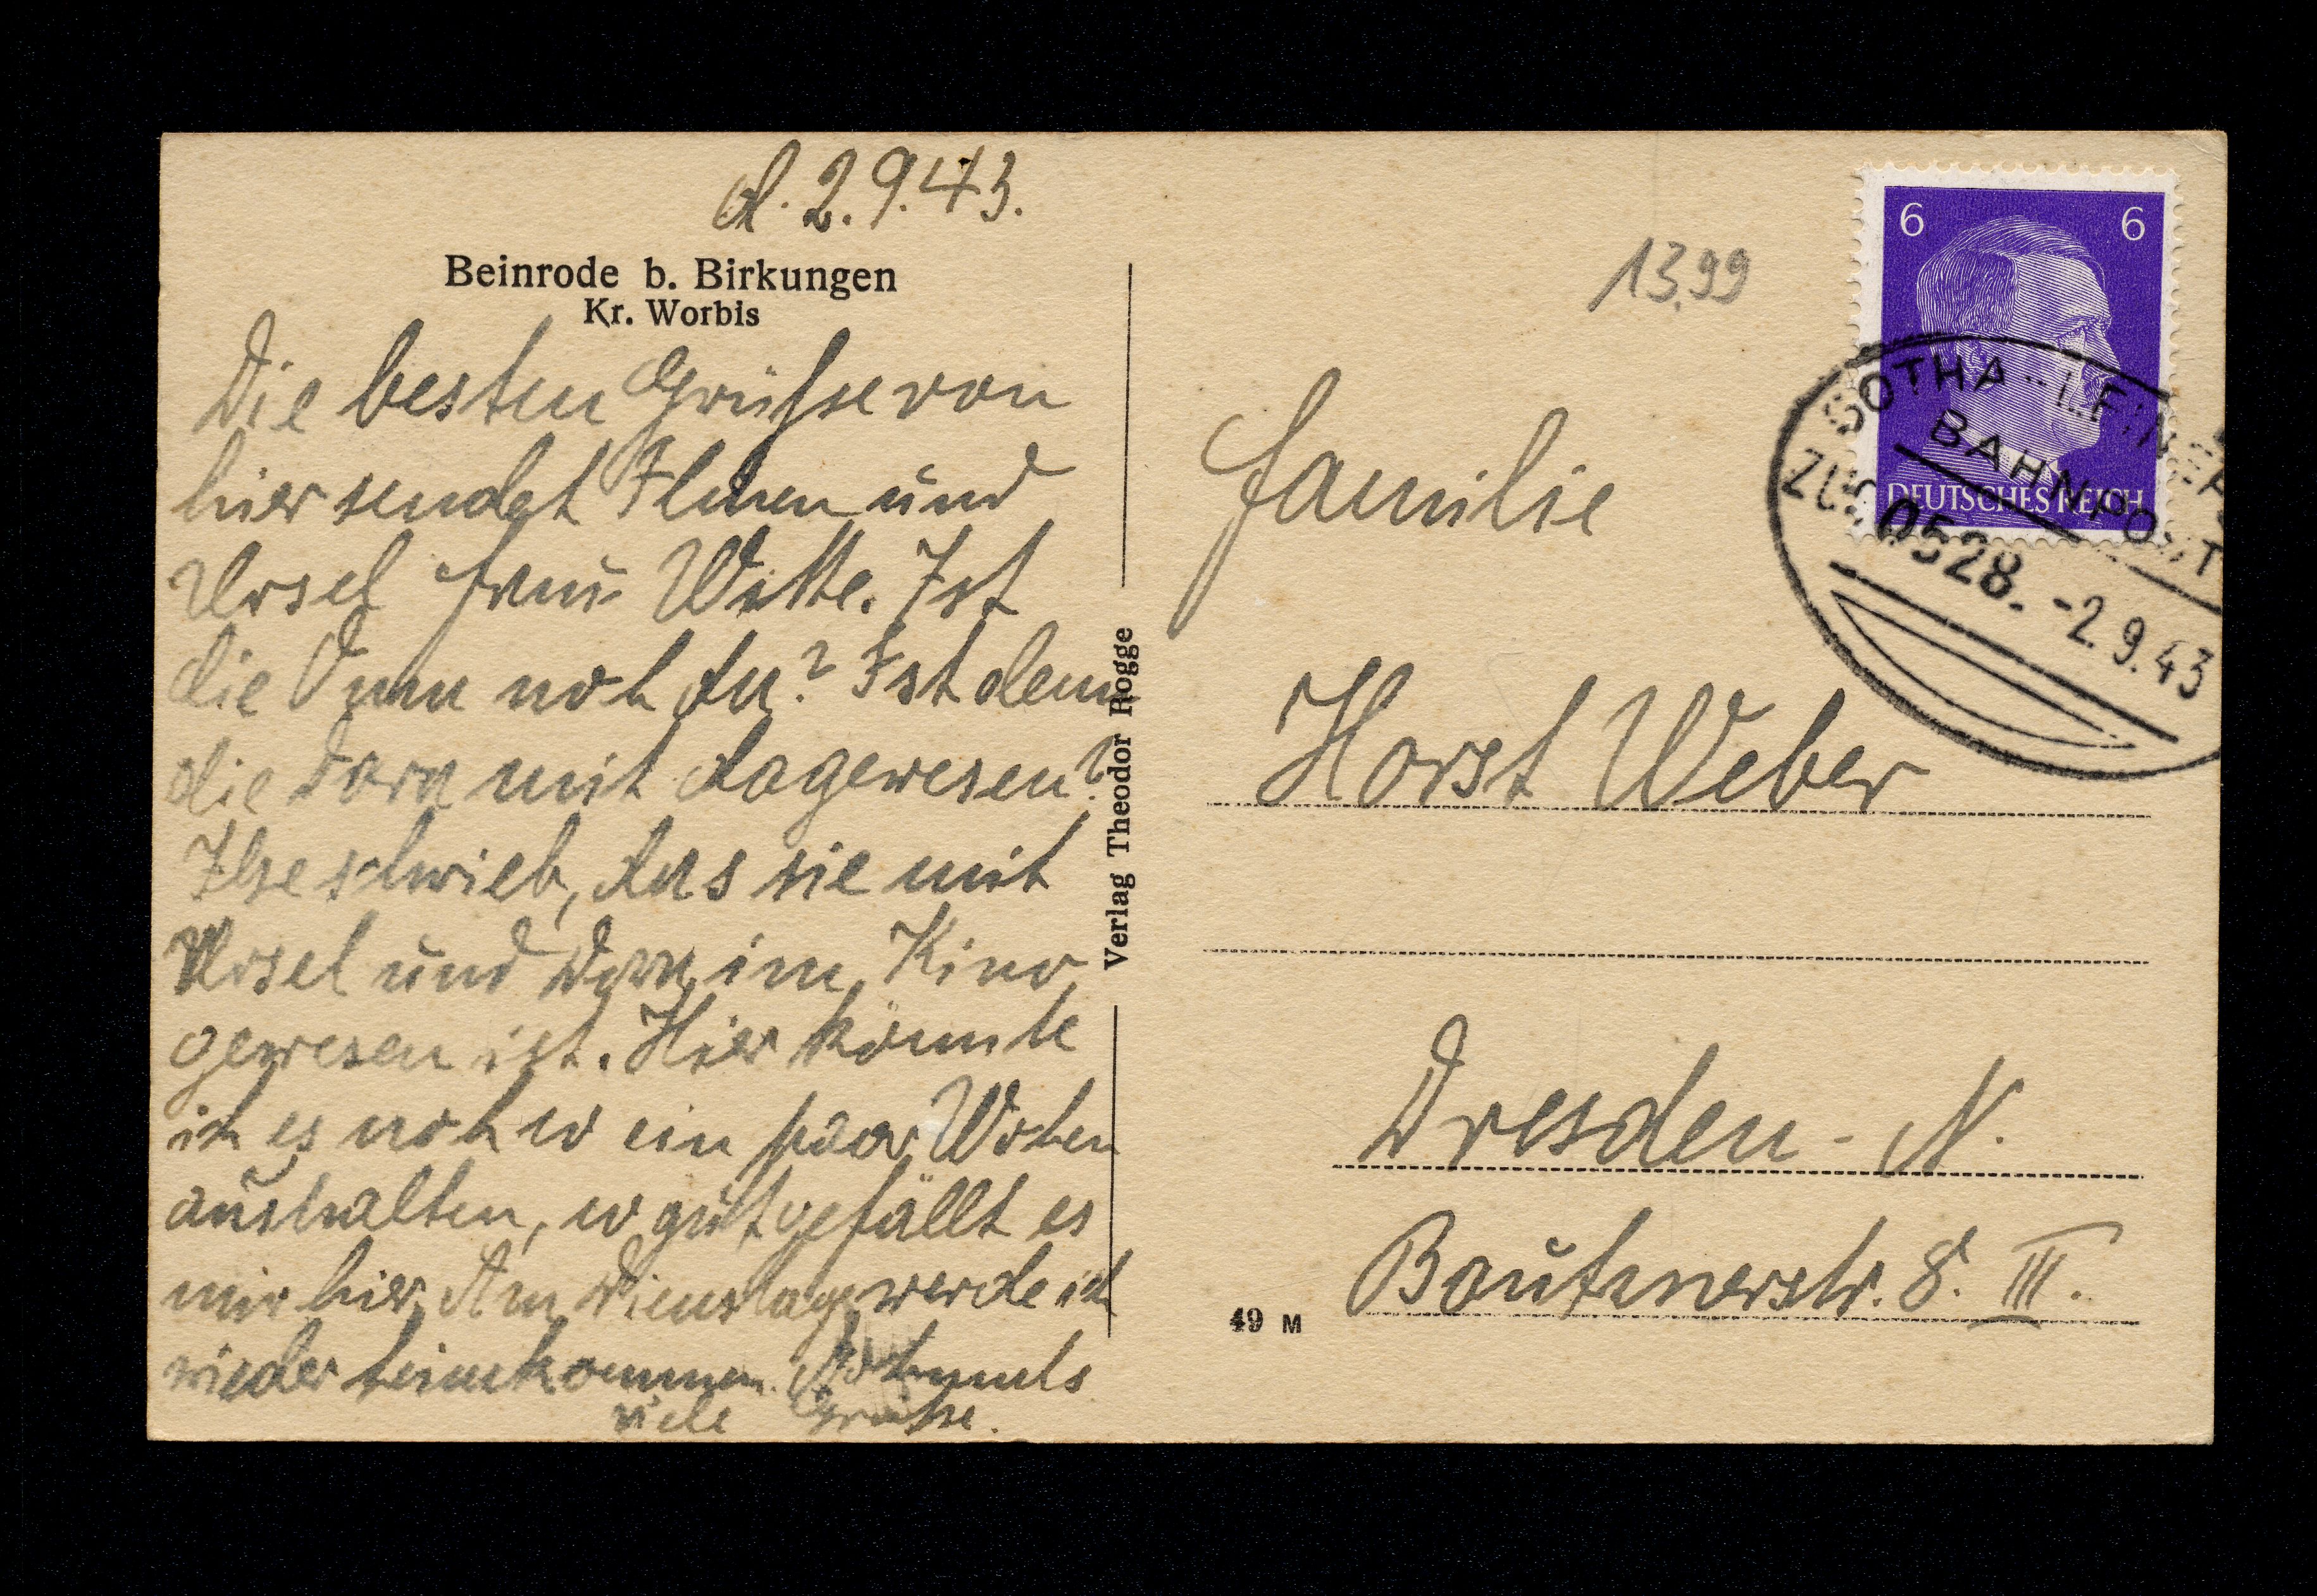 d. 2.9.43.
Beinrode b. Birkungen
Kr. Worbis
Die besten Grüsse von
hier sendet Ihnen und
Ursel Frau Witte. Ist
die Oma noch da? Ist denn
die Dora mit dagewesen?
Ilse schrieb, das sie mit
Ursel und Dora im Kino
gewesen ist. Hier könnte
ich es noch so ein paar Wochen
aushalten, so gut gefällt es
mir hier. Am Dienstag werde ich
wieder heimkommen. Nochmals
viele Grüsse.
Verlag Theodor Rogge
13.99
6 6
DEUTSCHES REICH
GOTHA
BAHNPOST
ZUG 0528. -2.9.43
Familie
Horst Weber
Dresden-N.
Bautznerstr. 8. III.
49 M